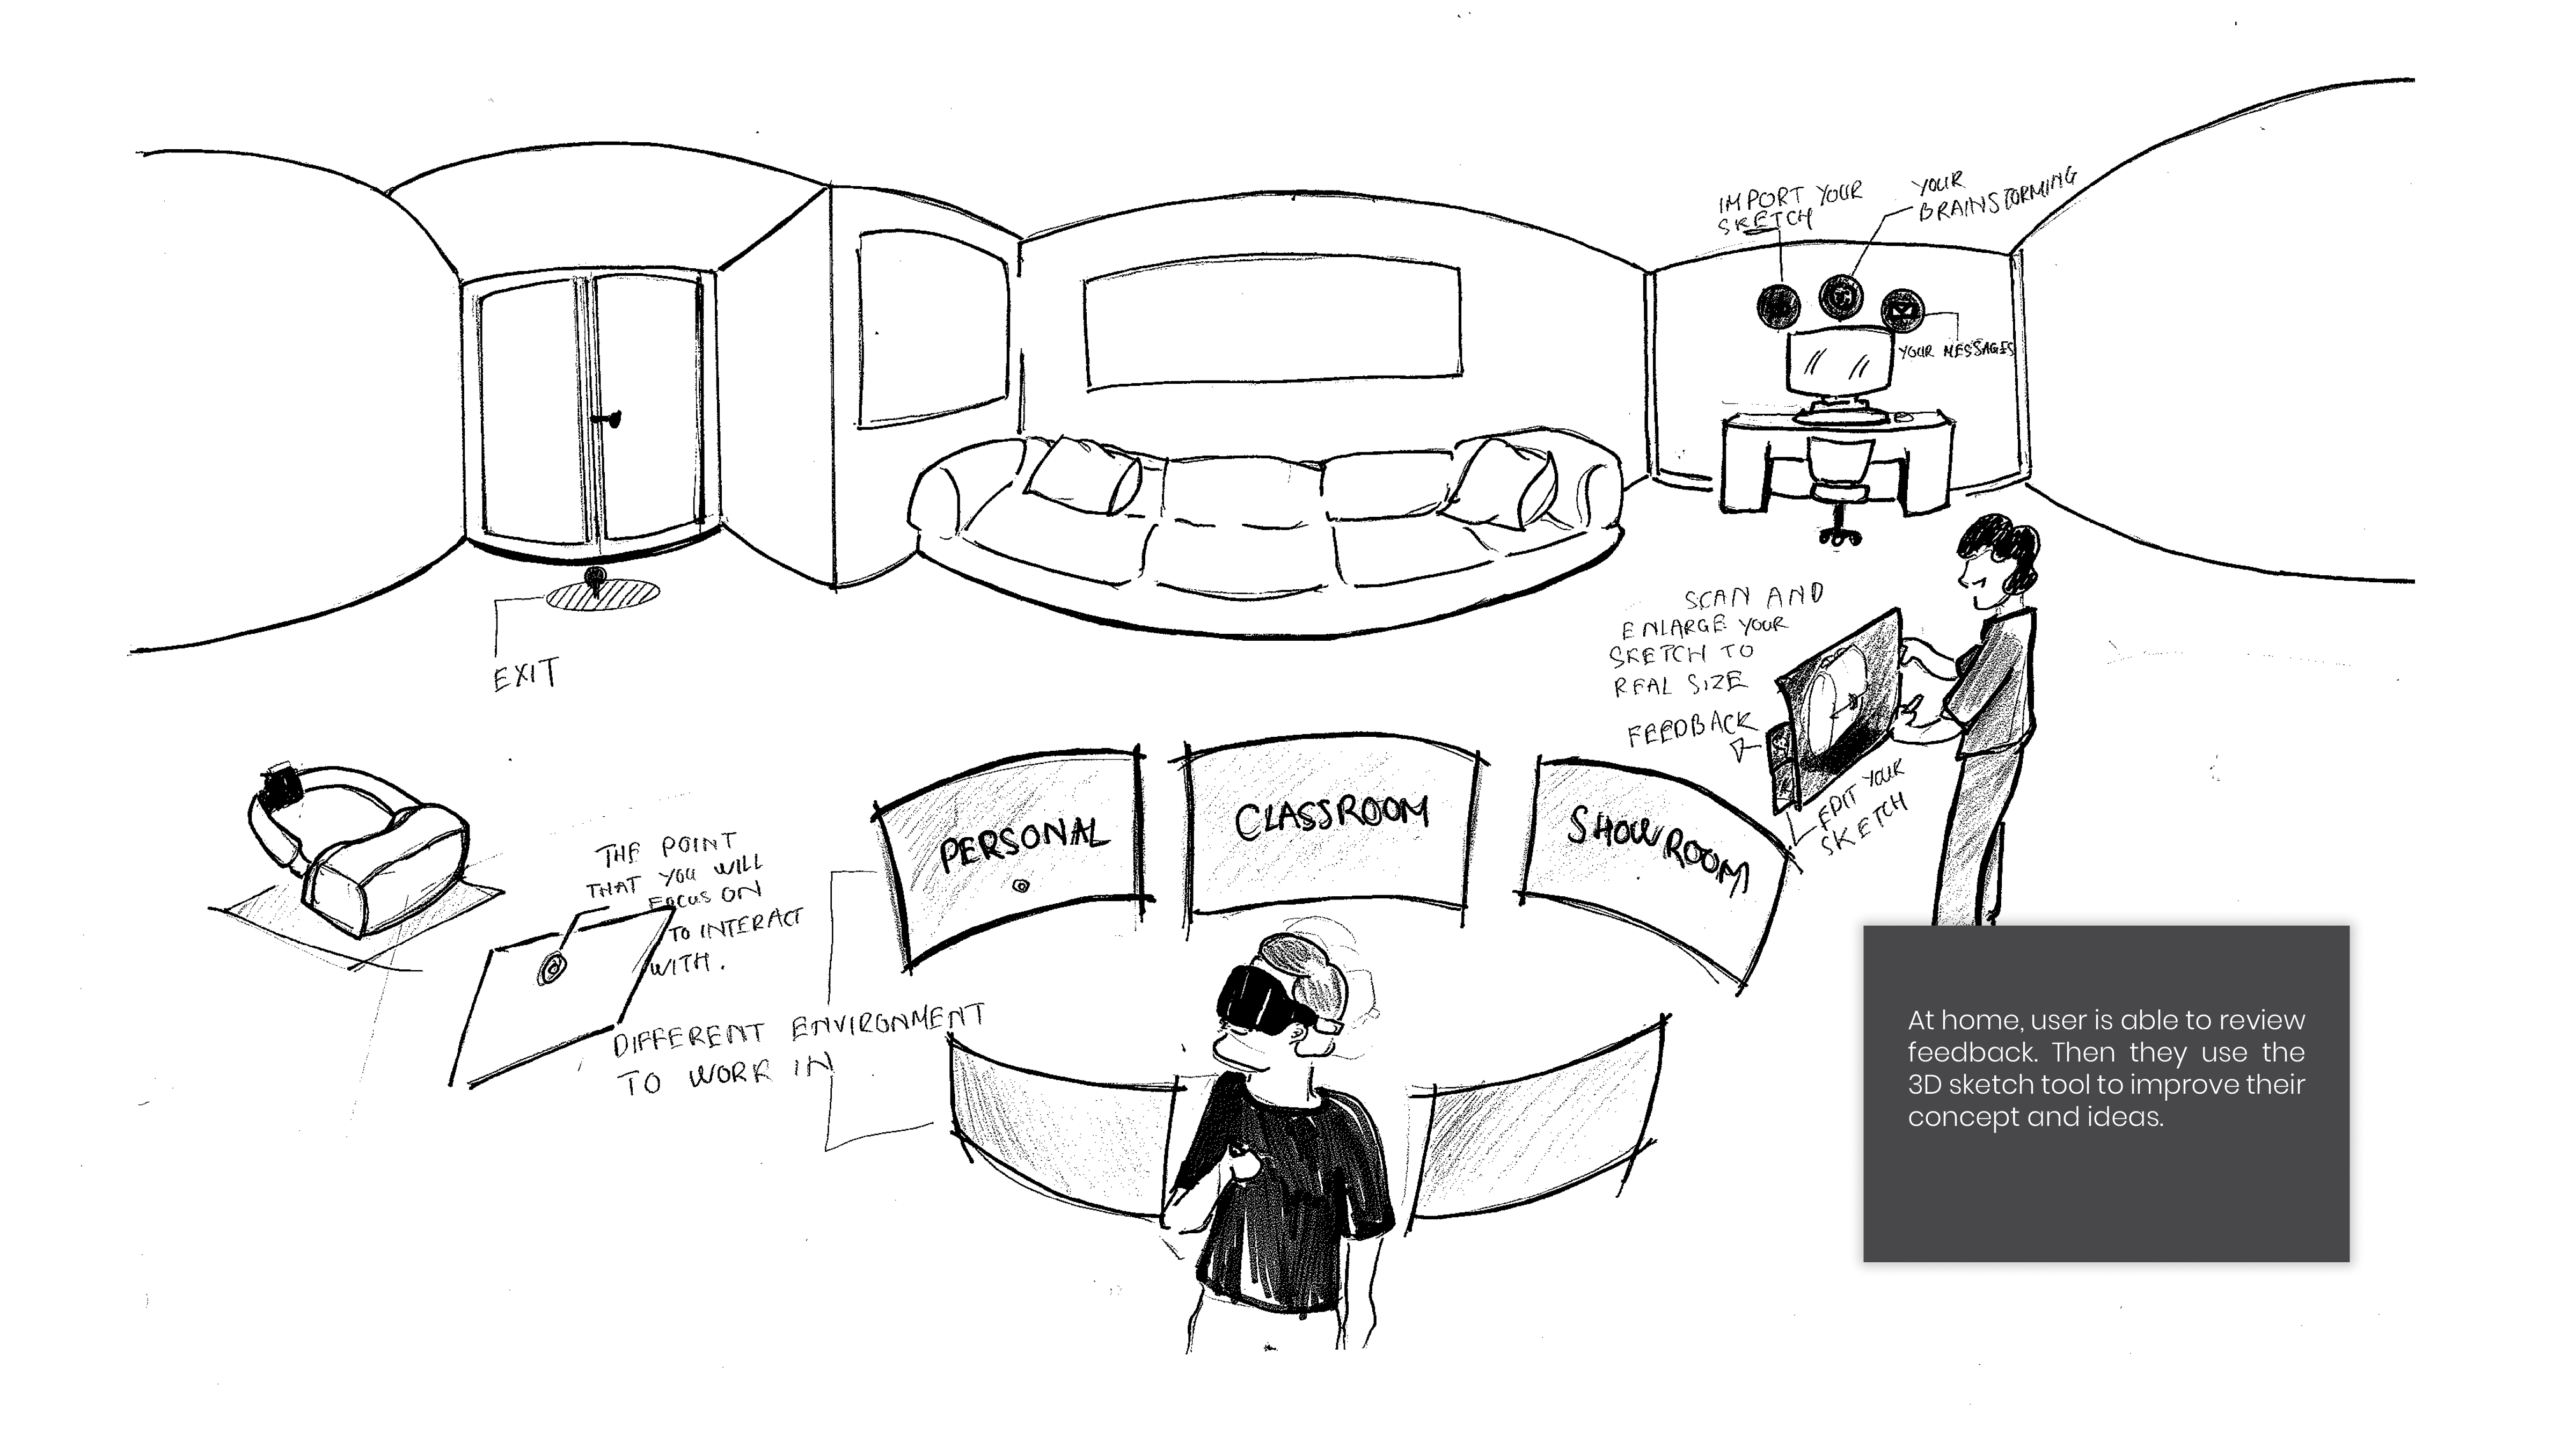 IMPORT YOUR
SKETCH
YOUR
BRAINSTORMING
YOUR MESSAGES
EXIT
SCAN AND
ENLARGE YOUR
SKETCH TO
REAL SIZE
FEEDBACK
EDIT YOUR
SKETCH
PERSONAL
CLASSROOM
SHOWROOM
THE POINT
THAT YOU WILL
FOCUS ON
TO INTERACT
WITH.
DIFFERENT ENVIRONMENT
TO WORK IN
At home, user is able to review
feedback. Then they use the
3D sketch tool to improve their
concept and ideas.